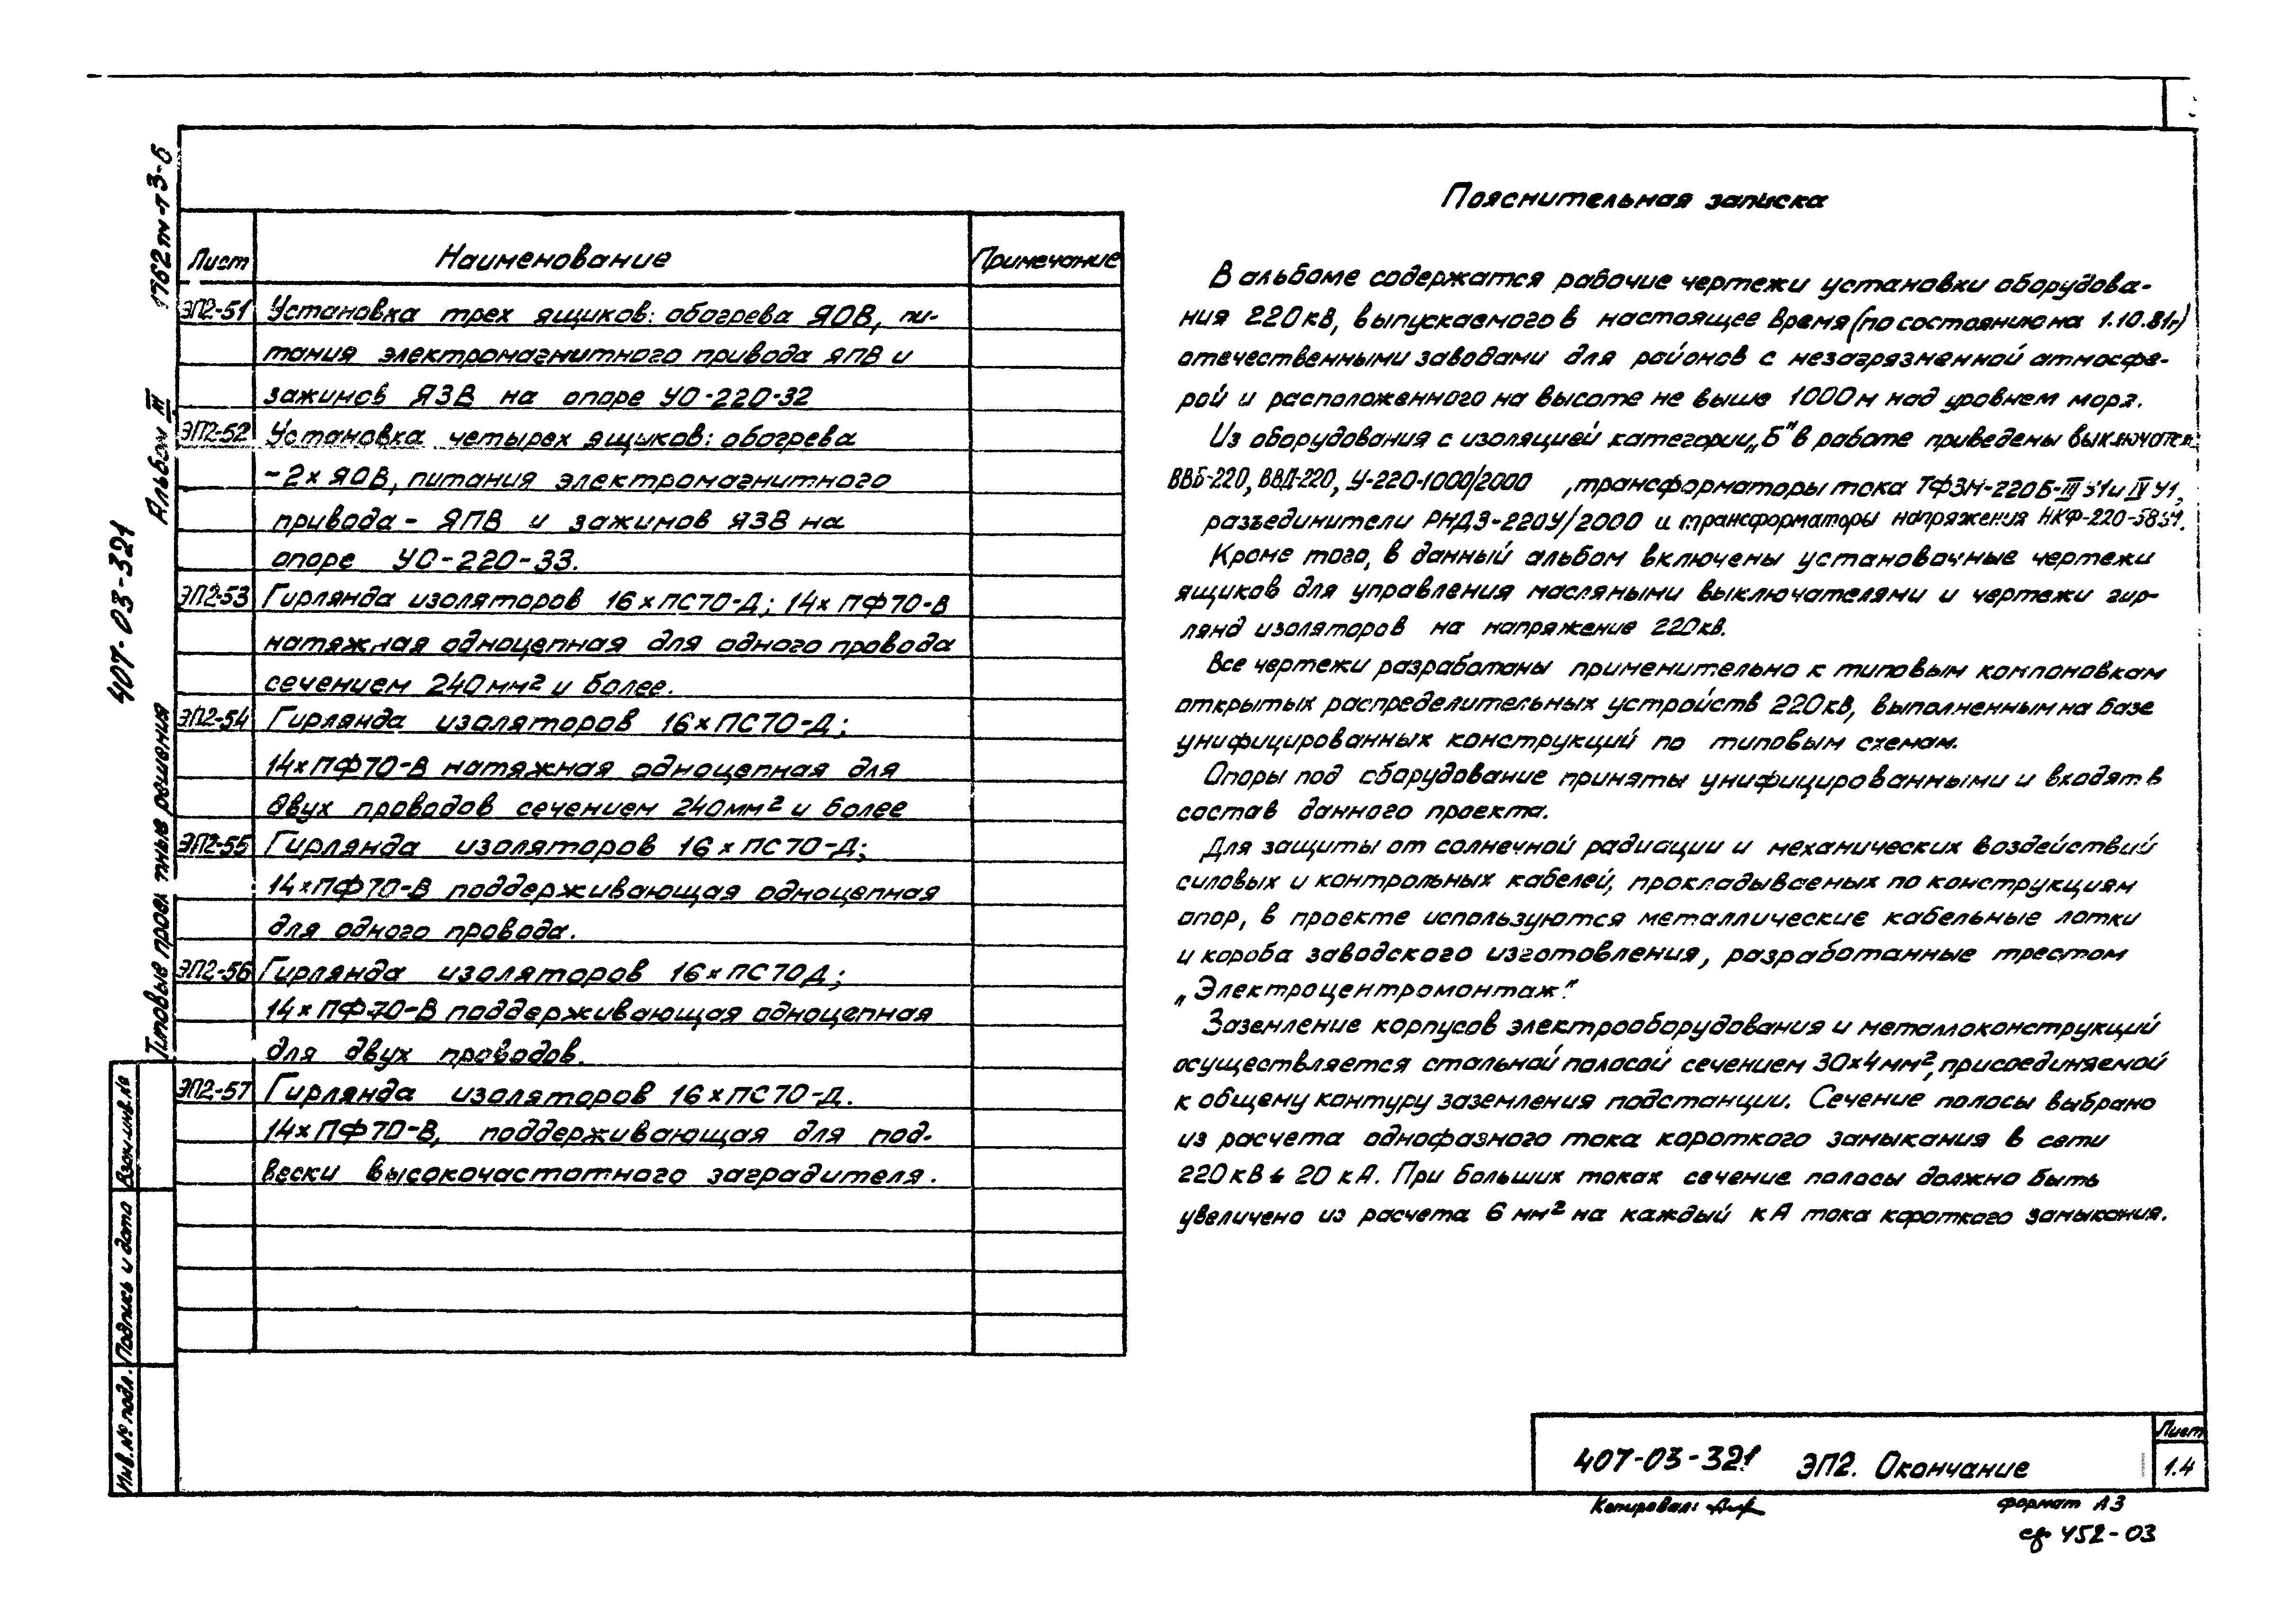 1762тм-т3-б
Альбом III
407-03-321
Типовые проектные решения
Взам.инв.№
Подпись и дата
Инв.№ подл.
Лист Наименование Примечание
ЭП2-51 Установка трех ящиков: обогрева ЯОВ, пи-
тания электромагнитного привода ЯПВ и
зажимов ЯЗВ на опоре УО-220-32
ЭП2-52 Установка четырех ящыков: обогрева
-2х ЯОВ, питания электромагнитного
привода - ЯПВ и зажимов ЯЗВ на
опоре УО-220-33.
ЭП2-53 Гирлянда изоляторов 16хПС70-Д; 14х ПФ70-В
натяжная одноцепная для одного провода
сечением 240мм² и более.
ЭП2-54 Гирлянда изоляторов 16хПС70-Д;
14хПФ70-В натяжная одноцепная для
двух проводов сечением 240мм² и более
ЭП2-55 Гирлянда изоляторов 16хПС70-Д;
14хПФ70-В поддерживающая одноцепная
для одного провода.
ЭП2-56 Гирлянда изоляторов 16хПС70Д;
14хПФ70-В поддерживающая одноцепная
для двух проводов.
ЭП2-57 Гирлянда изоляторов 16хПС70-Д.
14хПФ70-В, поддерживающая для под-
вески высокочастотного заградителя.
Пояснительная записка
В альбоме содержатся рабочие чертежи установки оборудова-
ния 220кВ, выпускаемого в настоящее время (по состоянию на 1.10.81г)
отечественными заводами для районов с незагрязненной атмосфе-
рой и расположенного на высоте не выше 1000м над уровнем моря.
Из оборудования с изоляцией категории „Б" в работе приведены выключатели
ВВБ-220, ВВД-220, У-220-1000/2000 , трансформаторы тока ТФЗМ-220Б-III У1 и IV У1,
разъединители РНДЗ-220У/2000 и трансформаторы напряжения НКФ-220-58У1.
Кроме того, в данный альбом включены установочные чертежи
ящиков для управления масляными выключателями и чертежи гир-
лянд изоляторов на напряжение 220кв.
Все чертежи разработаны применительно к типовым компоновкам
открытых распределительных устройств 220кВ, выполненным на базе
унифицированных конструкций по типовым схемам.
Опоры под оборудование приняты унифицированными и входят в
состав данного проекта.
Для защиты от солнечной радиации и механических воздействий
силовых и контрольных кабелей, прокладываемых по конструкциям
опор, в проекте используются металлические кабельные лотки
и короба заводского изготовления, разработанные трестом
„Электроцентромонтаж".
Заземление корпусов электрооборудования и металлоконструкций
осуществляется стальной полосой сечением 30х4мм², присоединяемой
к общему контуру заземления подстанции. Сечение полосы выбрано
из расчета однофазного тока короткого замыкания в сети
220кВ ≤ 20 кА. При больших токах сечение полосы должно быть
увеличено из расчета 6 мм² на каждый кА тока короткого замыкания.
407-03-321 ЭП2. Окончание
Лист
1.4
Копировал:
формат А3
сф 452-03